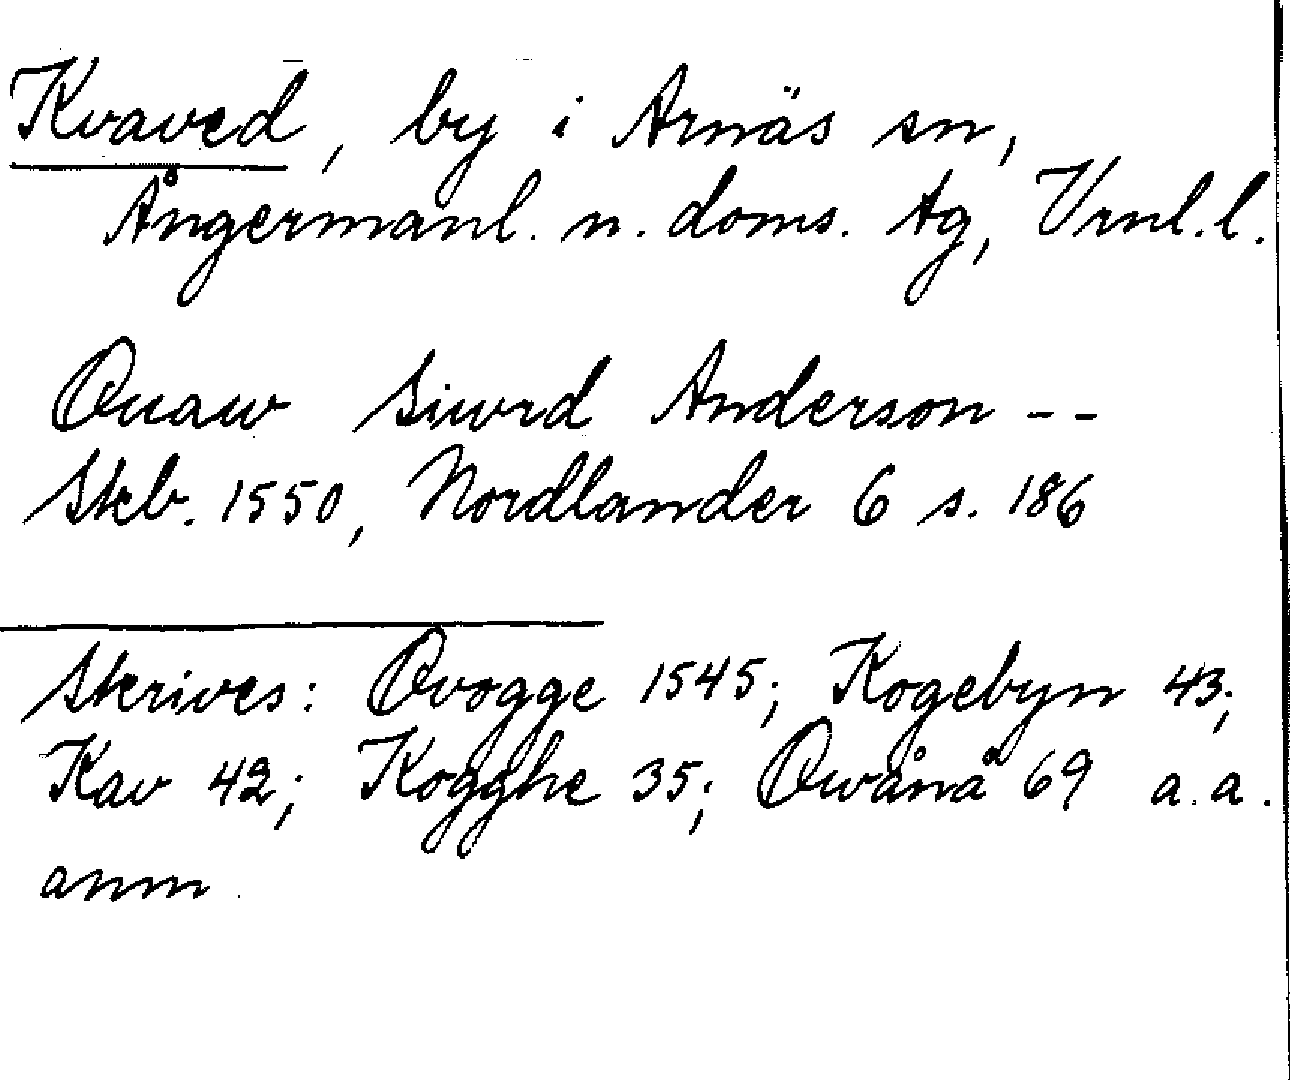 Kvaved, by i Arnäs sn,
Ångermanl. n. doms. tg, Vrnl. l.
Quaw Siwrd Anderson --
Skb. 1550, Nordlander 6 s. 186
Skrives: Qvogge 1545; Kogebyn 43;
Kav 42; Kogghe 35; Qwånå 69 a.a.
anm.